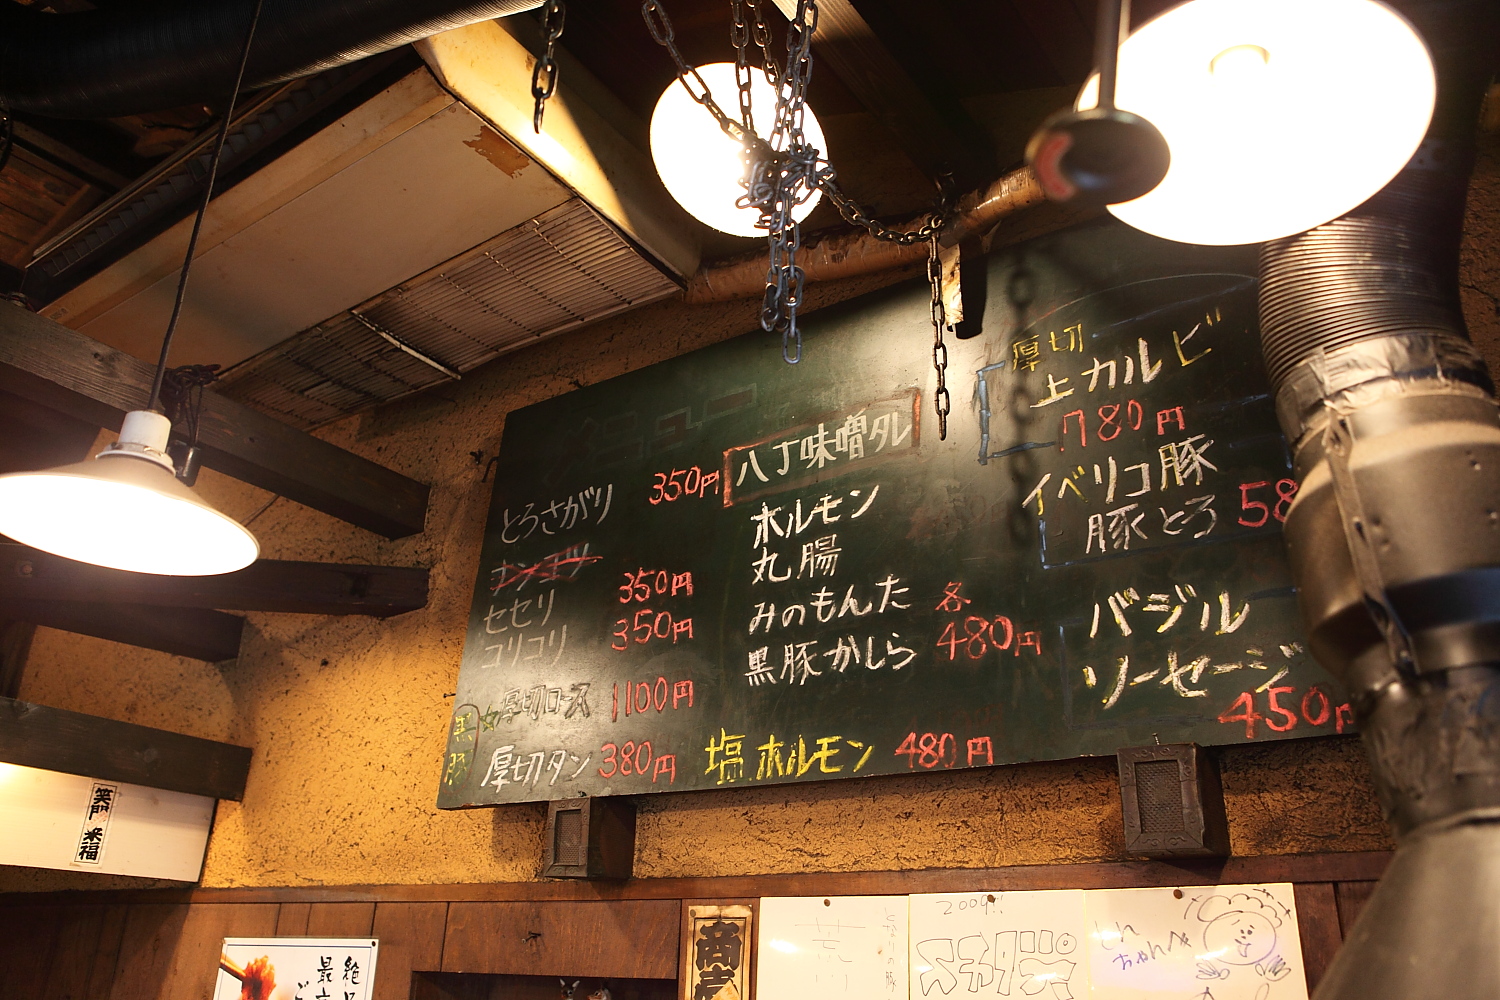 メニュー
とろさがり 350円
セセリ 350円
コリコリ 350円
黒豚
厚切ロース 1100円
厚切タン 380円
八丁味噌タレ
ホルモン
丸腸
みのもんた
黒豚かしら
各
480円
塩ホルモン 480円
厚切
上カルビ
780円
イベリコ豚
豚とろ 58
バジル
ソーセージ
450
笑門来福
2009!!
とん
ちゃんへ
商売